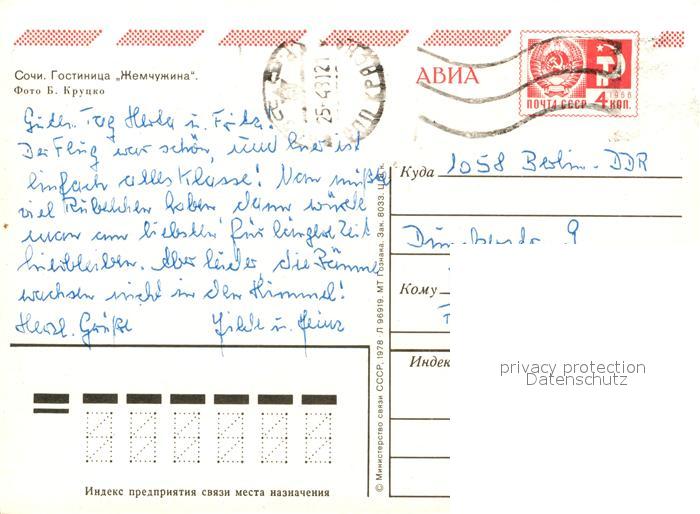 Сочи. Гостиница „Жемчужина“.
Фото Б. Круцко
АВИА
ПОЧТА СССР 4 КОП.
1966
Guten Tag Herta u. Fritz.
Der Flug war schön, und hier ist
einfach alles Klasse! Man müßte
viel Rubelchen haben dann würde
man am liebsten für längere Zeit
hierbleiben. Aber leider, die Bäume
wachsen nicht in den Himmel!
Herzl. Grüße Hilde u. Heinz
Куда 1058 Berlin-DDR
9
Кому
Индекс
privacy protection
Datenschutz
Индекс предприятия связи места назначения
© Министерство связи СССР, 1978 Л 96919. МТ Гознака. Зак. 8033. Ц.